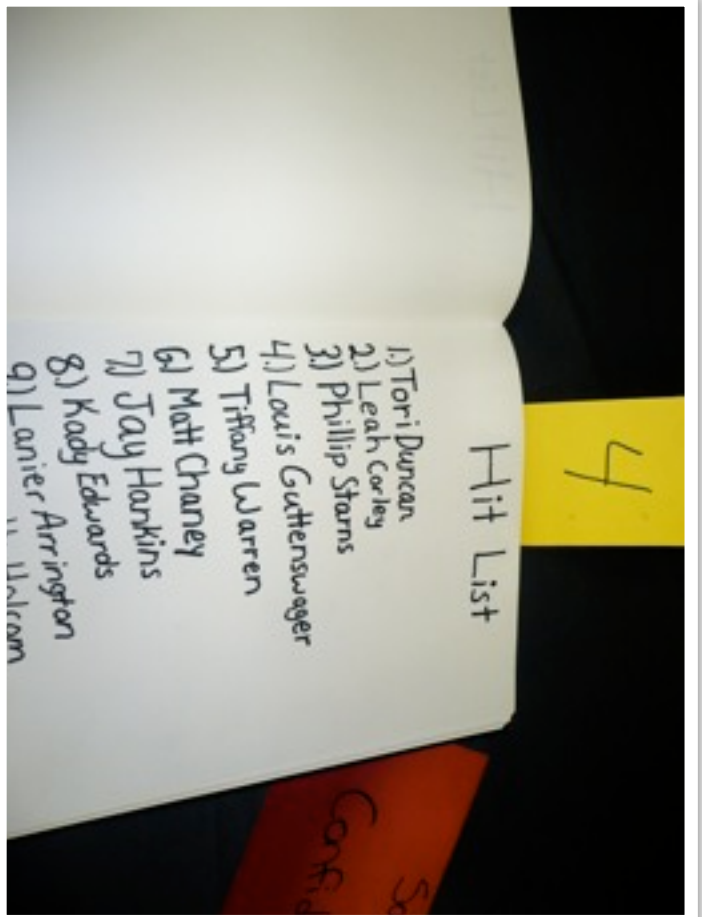 4
Hit List
1.) Tori Duncan
2.) Leah Corley
3.) Phillip Starns
4.) Louis Guttenswager
5.) Tiffany Warren
6.) Matt Chaney
7.) Jay Hankins
8.) Kady Edwards
9.) Lanier Arrington